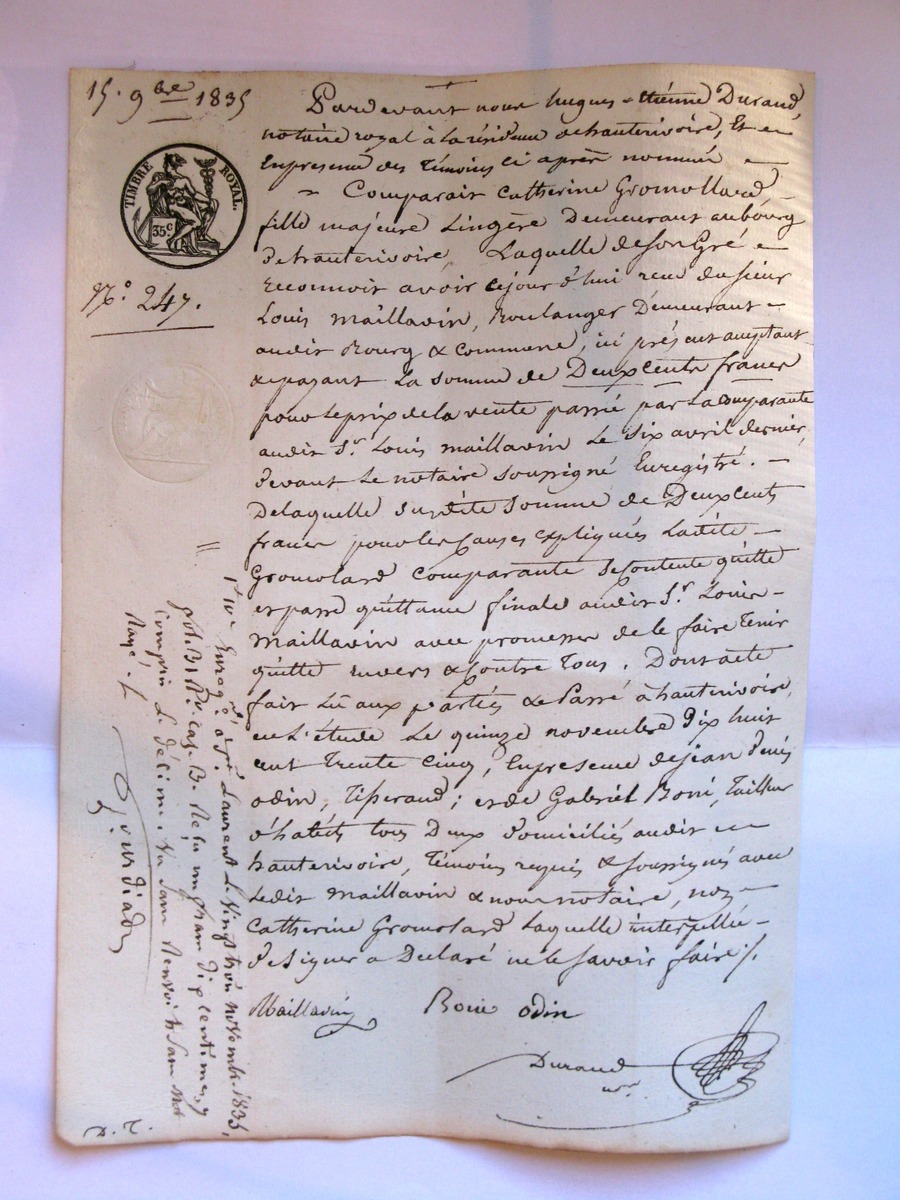 15. 9bre 1835
TIMBRE ROYAL.
35c
No. 247.
Pardevant nous hugues-étienne Durand,
notaire royal à la résidence de hauterivoire, Et en
En presence des témoins ci après nommés
Comparait Catherine Gromollard
fille majeure Lingère Demeurant au bourg
de hauterivoire, Laquelle de son Gré
reconnoit avoir cejourd'hui reçu du sieur
Louis Maillavin, Boulanger Demeurant
audit Bourg & commune, ici présent acceptant
& payant La somme de Deux cents francs
pour le prix de la vente passé par La comparante
audit Sr. Louis maillavin Le Six avril dernier,
devant Le notaire soussigné Enregistré.
De laquelle susdite Somme de Deux cents
francs pour les causes expliqués Ladite
Gromolard comparante se contente quitte
et passe quittance finale audit Sr. Louis
maillavin avec promesse de le faire tenir
quitte envers & contre tous. Dont acte
fait Lû aux parties & Passé à hauterivoire,
en L'étude Le quinze novembre dix huit
cent trente cinq, En presence de jean denis
odin, tisserand; et de Gabriel Boni, tailleur
d'habits tous Deux domiciliés audit
hauterivoire, témoins requis & soussignés avec
Ledit maillavin & nous notaire, non
Catherine Gromolard Laquelle interpellée
de Signer a Déclaré ne le savoir faire /.
Maillavin Boni odin
Durand
nre.
Enreg. à St. Laurent Le Vingt trois novembre 1835,
fol. 31 Ro. cas. B. Reçu un franc dix centimes, y
Compris Le décime. Va Sans Renvoi & Sans Mot
Rayé.
Gourdiad
D. T.